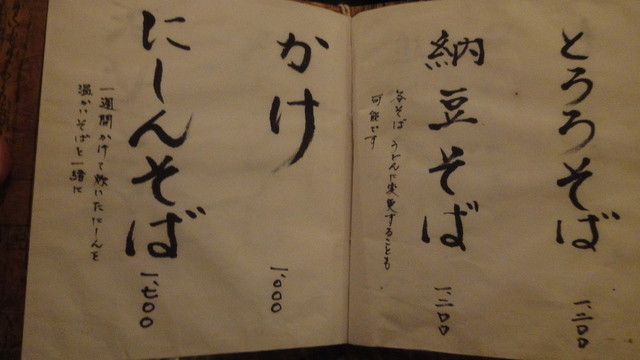 とろろそば
一、二〇〇
納豆そば
一、二〇〇
各そば うどんに変更することも
可能です
かけ
一、〇〇〇
にしんそば
一、七〇〇
一週間かけて炊いたにしんを
温かいそばと一緒に